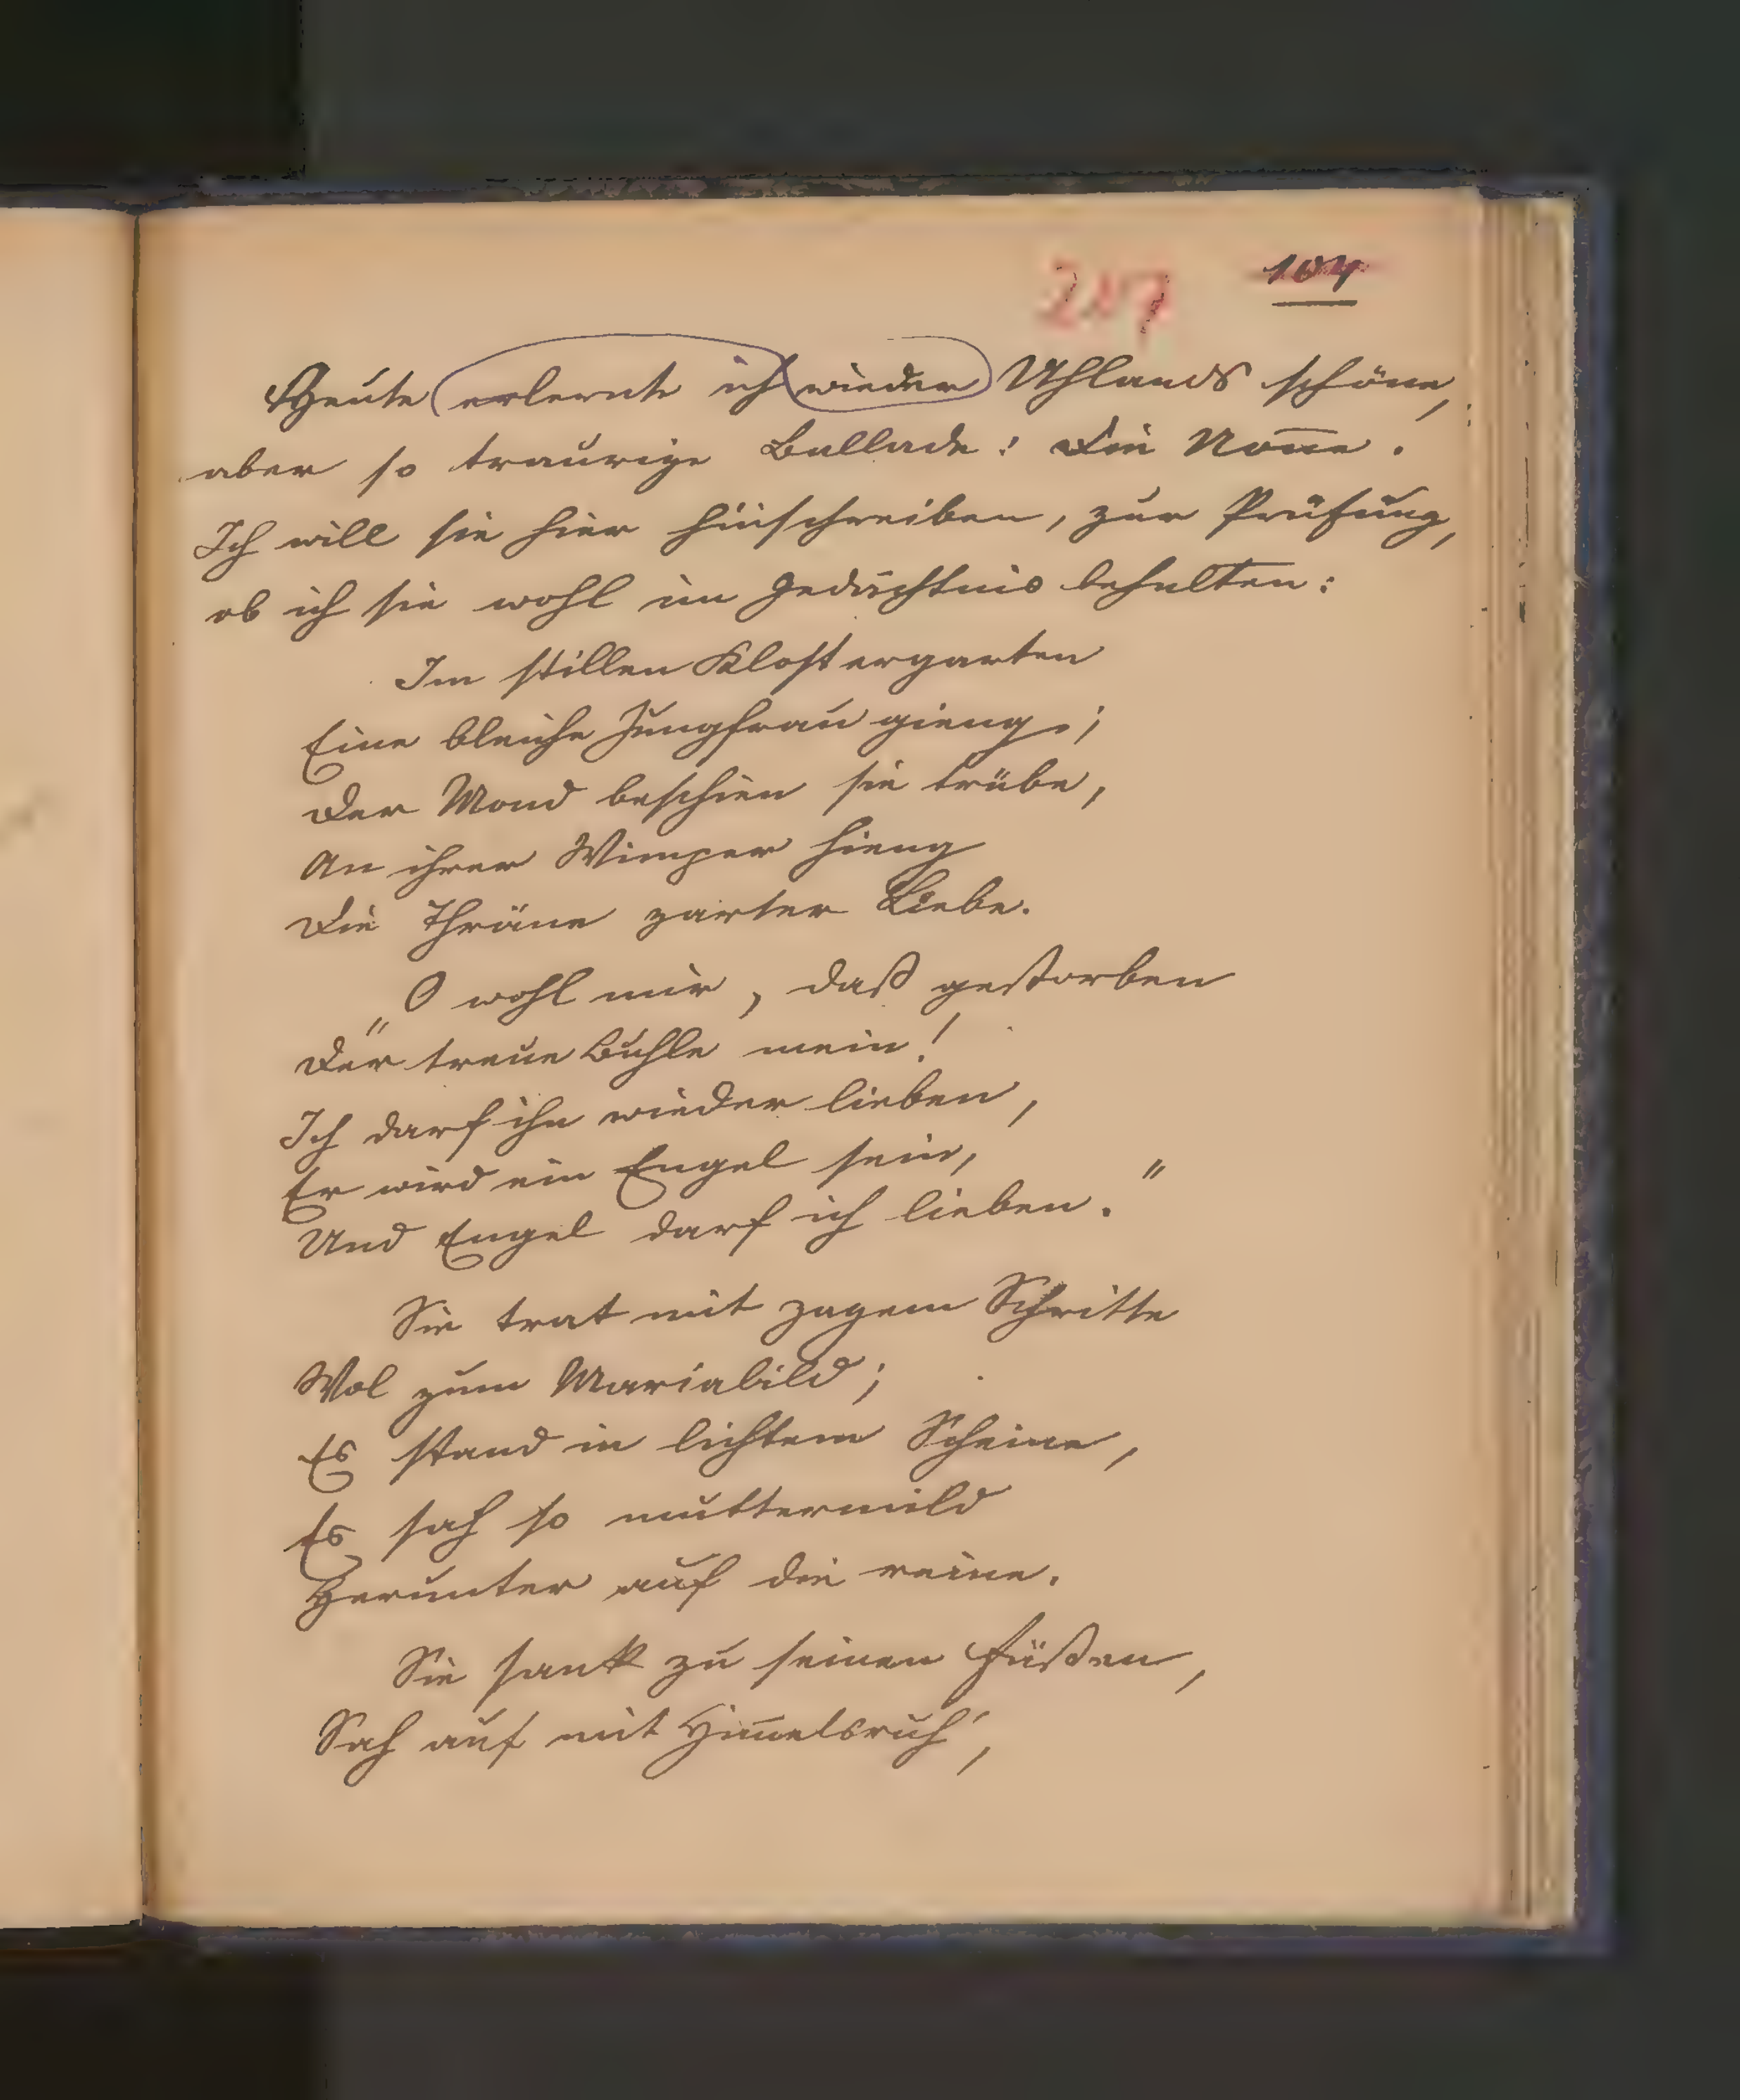 207 104
Heute erlernte ich wieder Uhlands schöne,
aber so traurige Ballade: Die Non̅e.
Ich will sie hier hinschreiben, zur Prüfung,
ob ich sie wohl im Gedächtnis behalten:
Im stillen Klostergarten
Eine bleiche Jungfrau gieng.;
Der Mond beschien sie trübe,
An ihrer Wimper hieng
Die Thräne zarter Liebe.
„O wohl mir, daß gestorben
Der treue Buhle mein!
Ich darf ihn wieder lieben,
Er wird ein Engel sein,
Und Engel darf ich lieben."
Sie trat mit zagem Schritte
Wol zum Mariabild;
Es stand in lichtem Scheine,
Es sah so muttermild
Herunter auf die reine.
Sie sank zu seinen Füßen,
Sah auf mit Him̅elsruh',